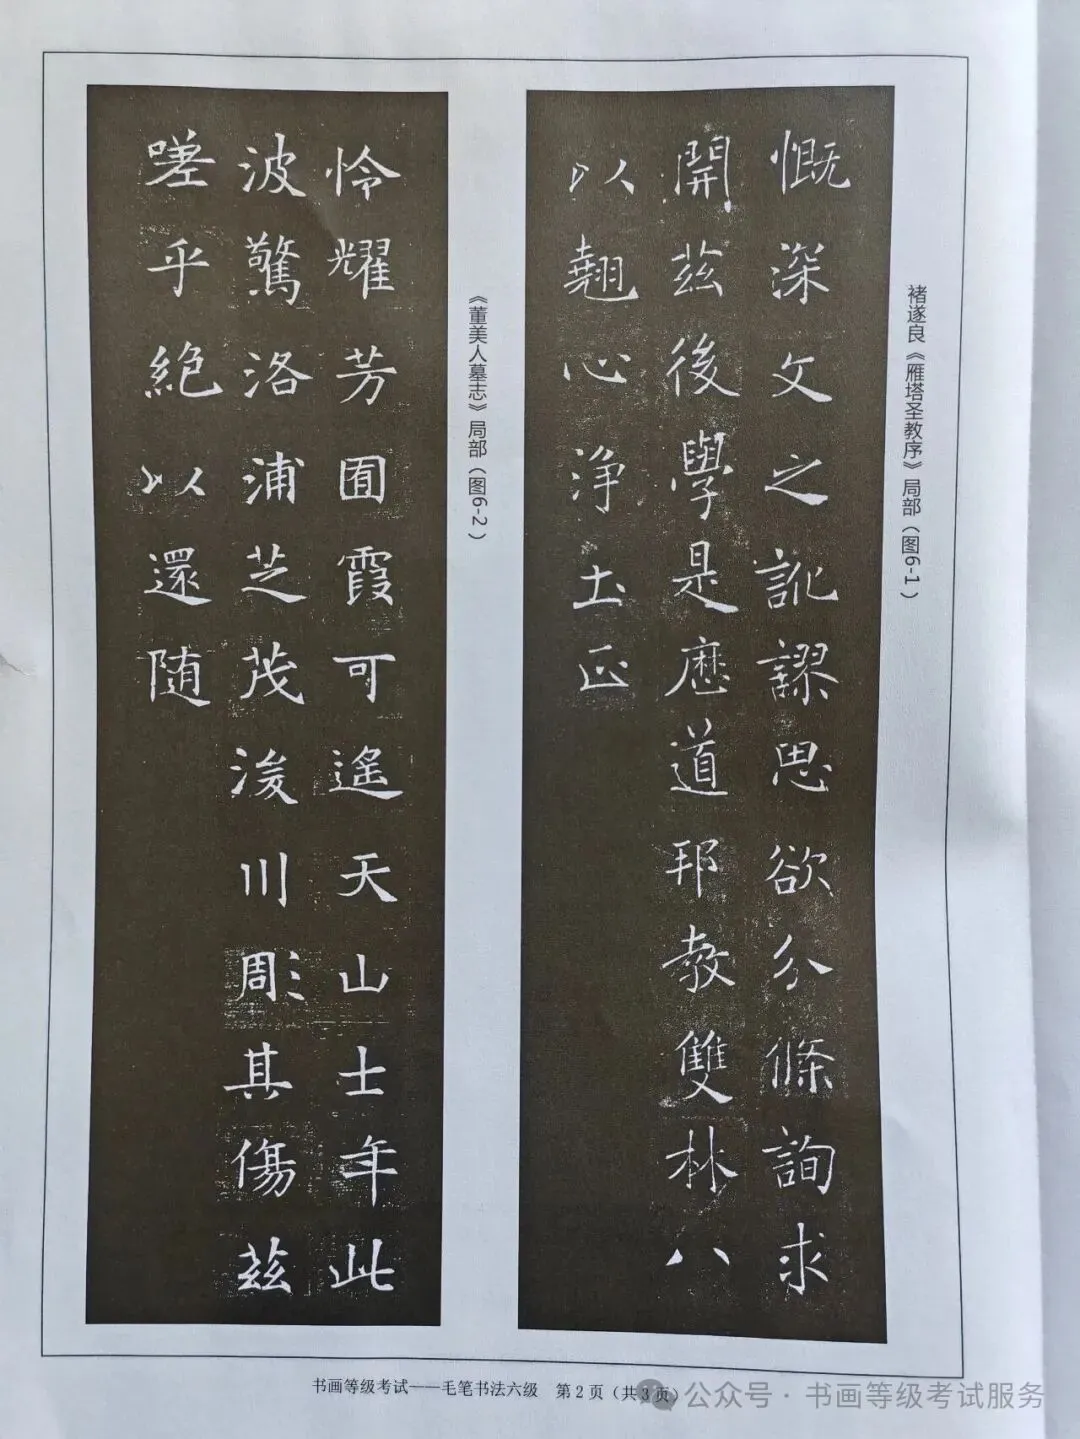 慨深文之訛謬思欲分條詢求
開茲後學是歷道邦教雙林八
以翹心淨土正
褚遂良《雁塔圣教序》局部（图6-1）
怜耀芳囿霞可遙天山士年此
波驚洛浦芝茂浚川彫其傷茲
嗟乎絕以還随
《董美人墓志》局部（图6-2）
书画等级考试——毛笔书法六级 第2页（共3页）
公众号·书画等级考试服务